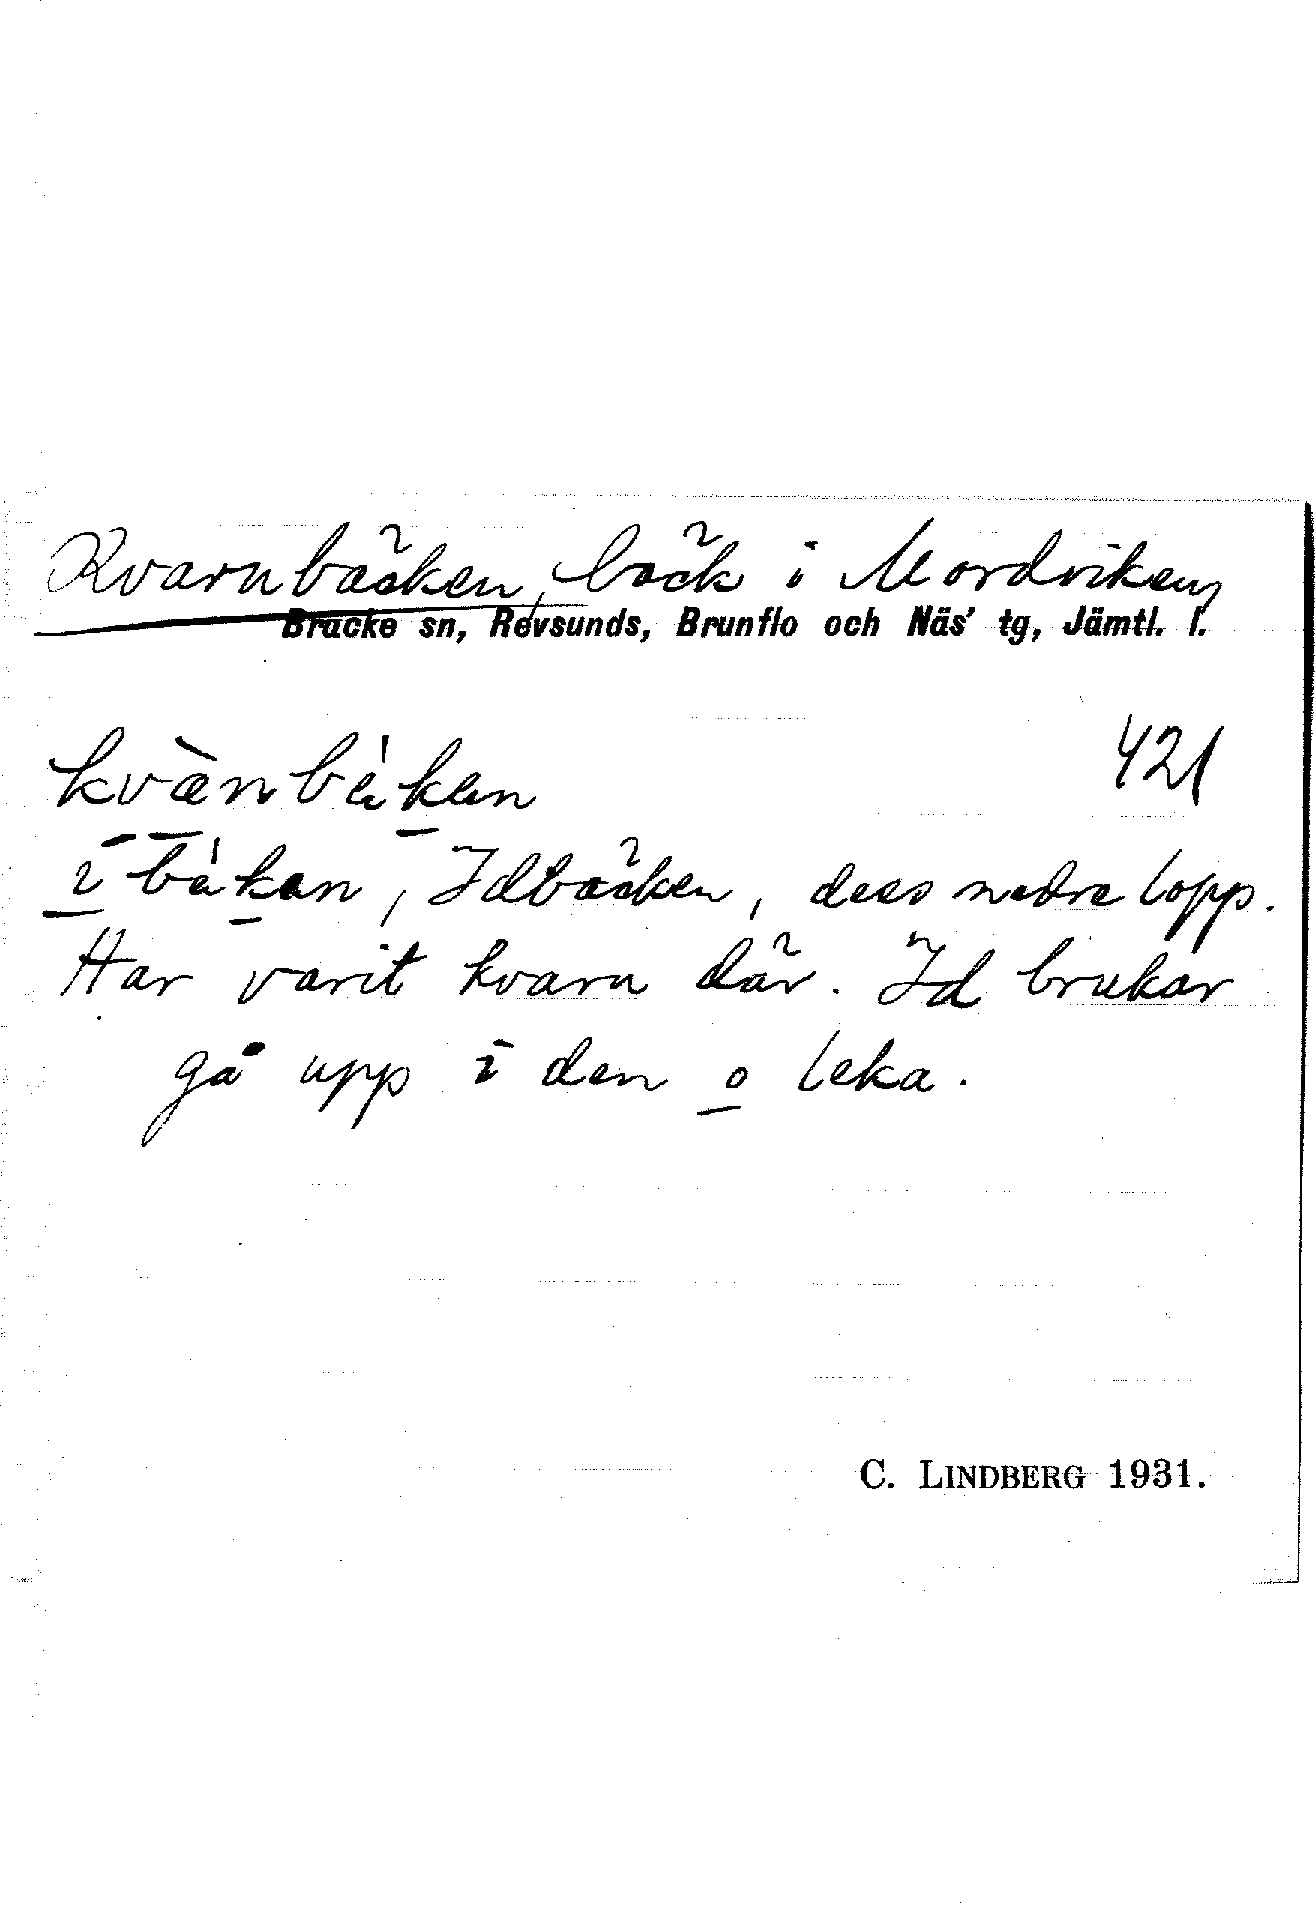 Kvarnbäcken, bäck i Mordviken,
Bräcke sn, Revsunds, Brunflo och Näs' tg, Jämtl. l.
kvæ̀nbèken
421
ībèkan, Idbäcken, dess nedre lopp.
Har varit kvarn där. Id brukar
gå upp i den o leka.
C. LINDBERG 1931.